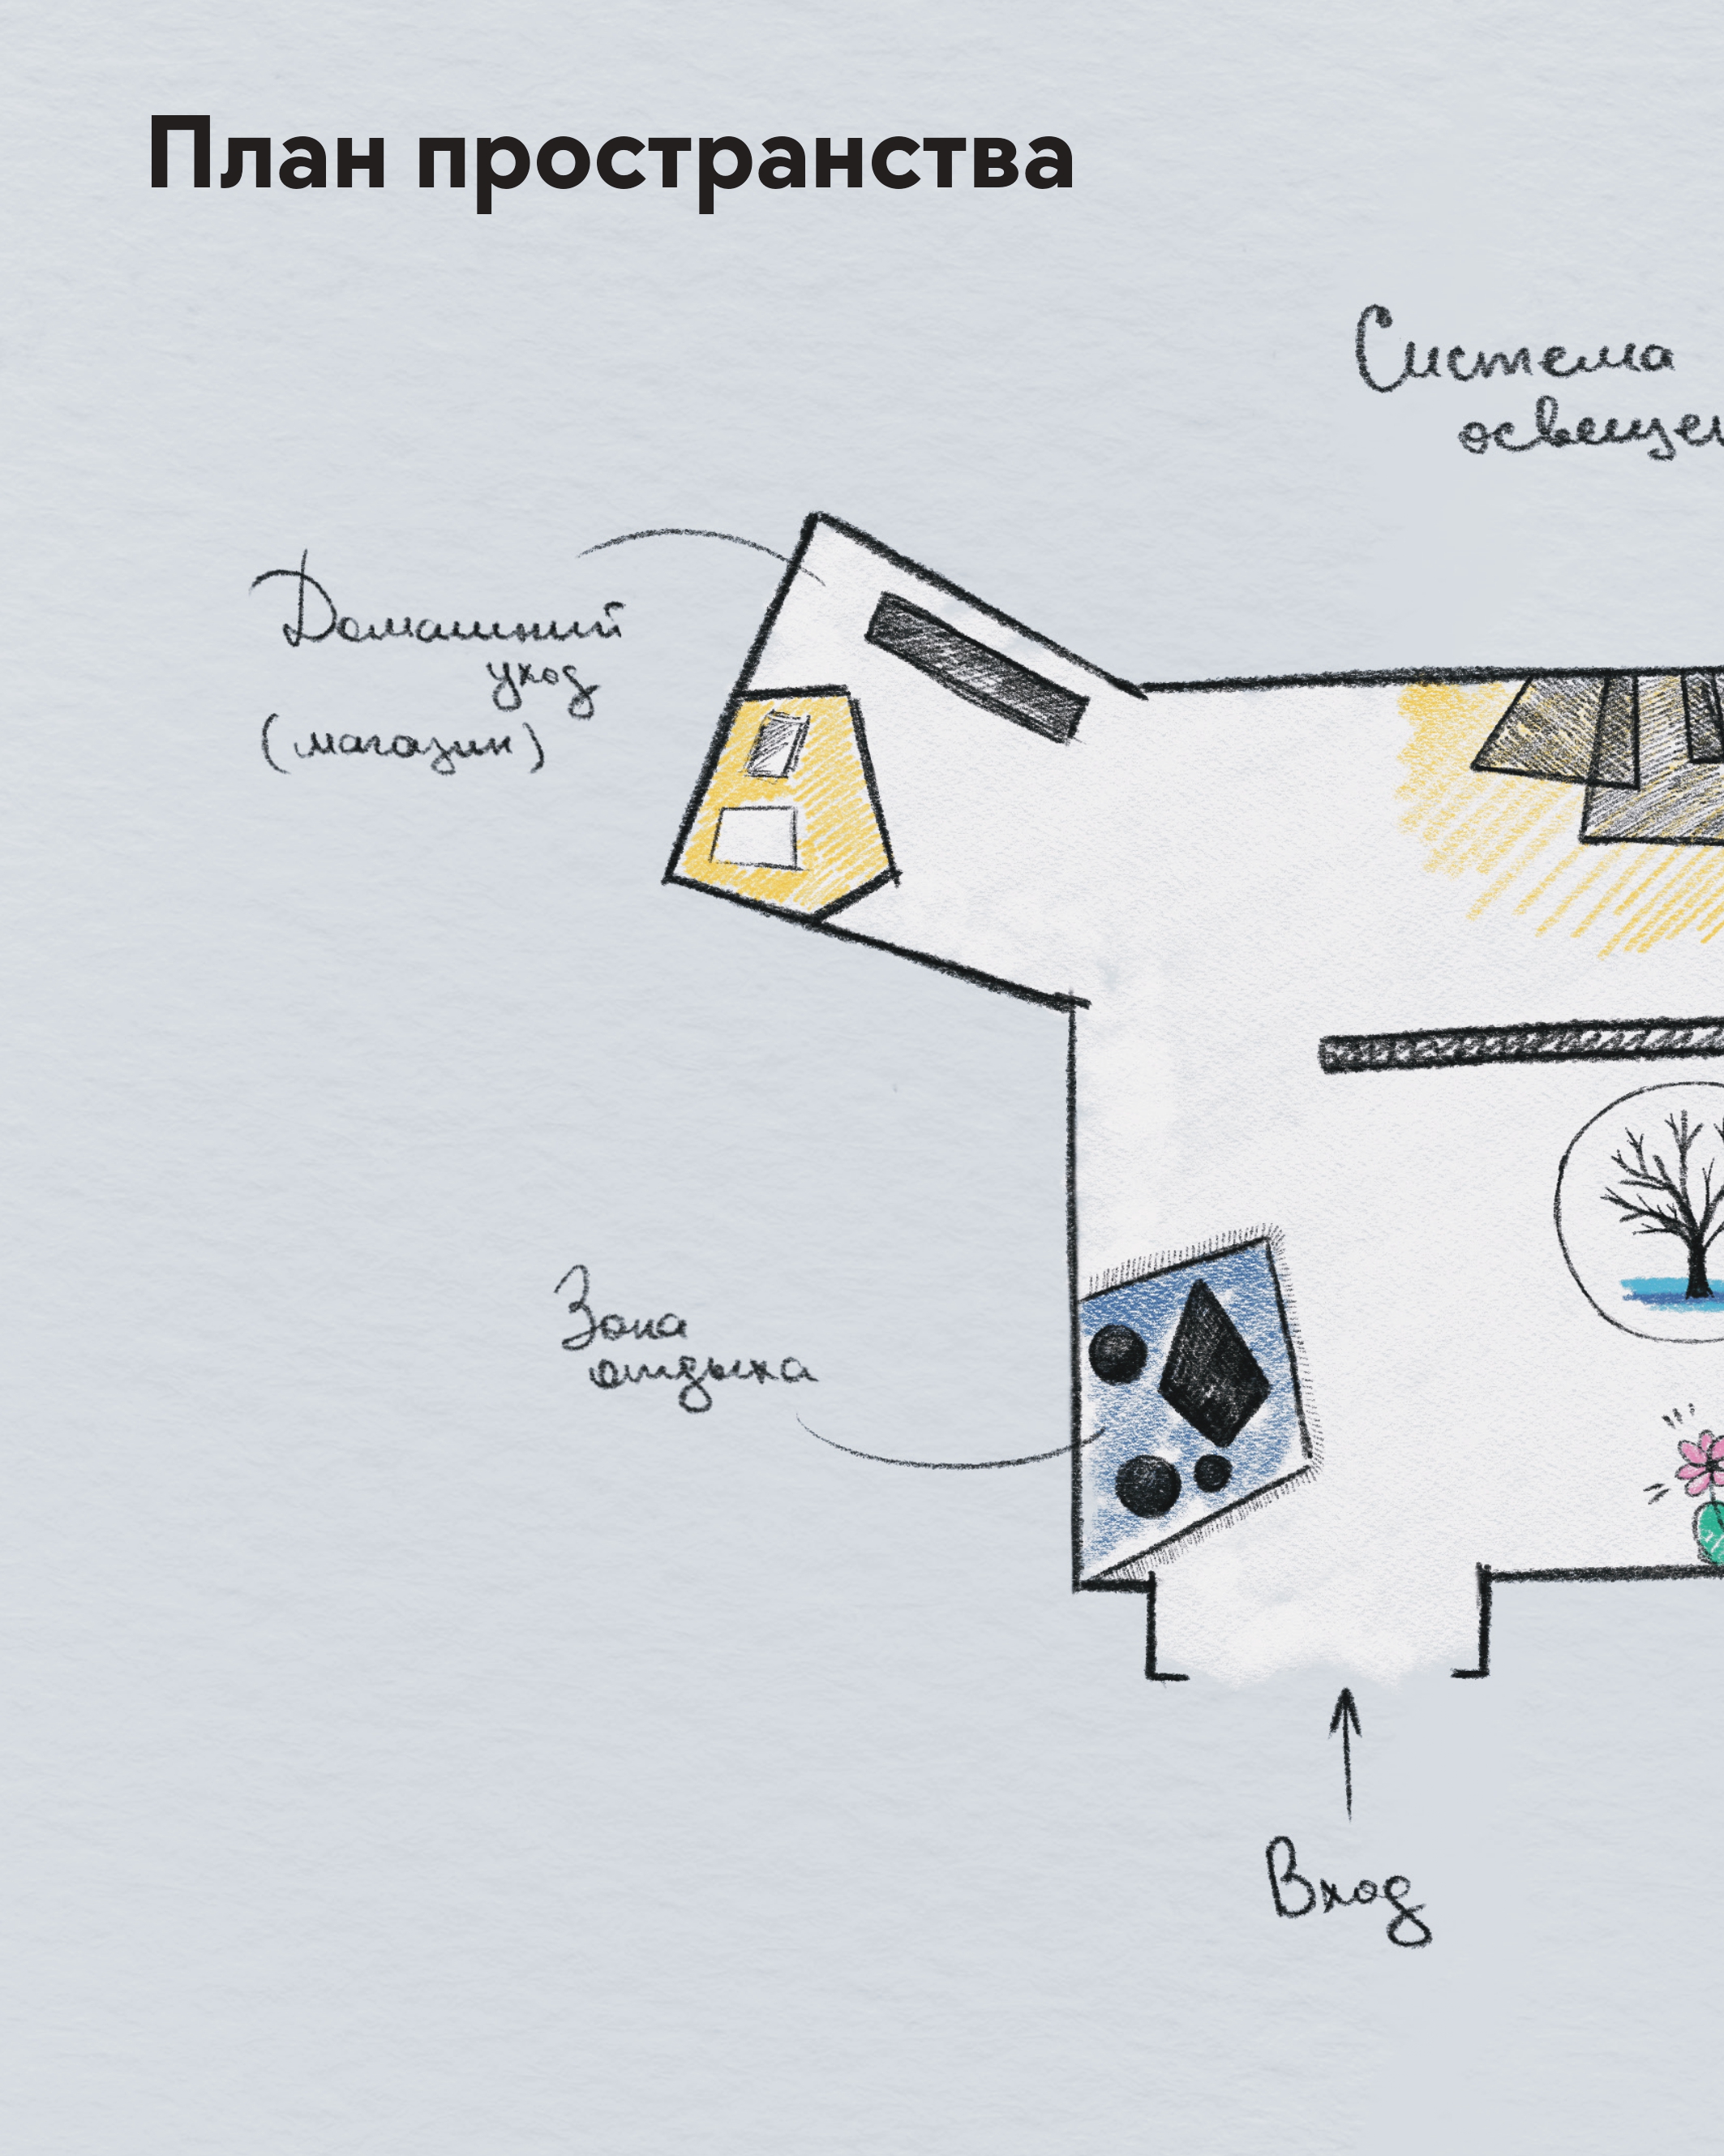 План пространства
Система
освещен
Домашний
уход
(магазин)
Зона
отдыха
Вход